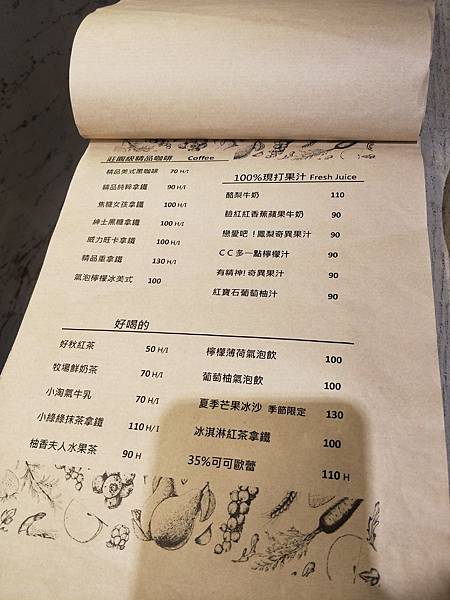 莊園級精品咖啡 Coffee
精品美式黑咖啡 70 H/I
精品純粹拿鐵 90 H/I
焦糖女孩拿鐵 100 H/I
紳士黑糖拿鐵 100 H/I
威力旺卡拿鐵 100 H/I
精品重拿鐵 130 H/I
氣泡檸檬冰美式 100
100%現打果汁 Fresh Juice
酪梨牛奶 110
臉紅紅香蕉蘋果牛奶 90
戀愛吧！鳳梨奇異果汁 90
CC多一點檸檬汁 90
有精神!奇異果汁 90
紅寶石葡萄柚汁 90
好喝的
好秋紅茶 50 H/I
牧場鮮奶茶 70 H/I
小淘氣牛乳 70 H/I
小綠綠抹茶拿鐵 110 H/I
柚香夫人水果茶 90 H
檸檬薄荷氣泡飲 100
葡萄柚氣泡飲 100
夏季芒果冰沙 季節限定 130
冰淇淋紅茶拿鐵 100
35%可可歐蕾 110 H